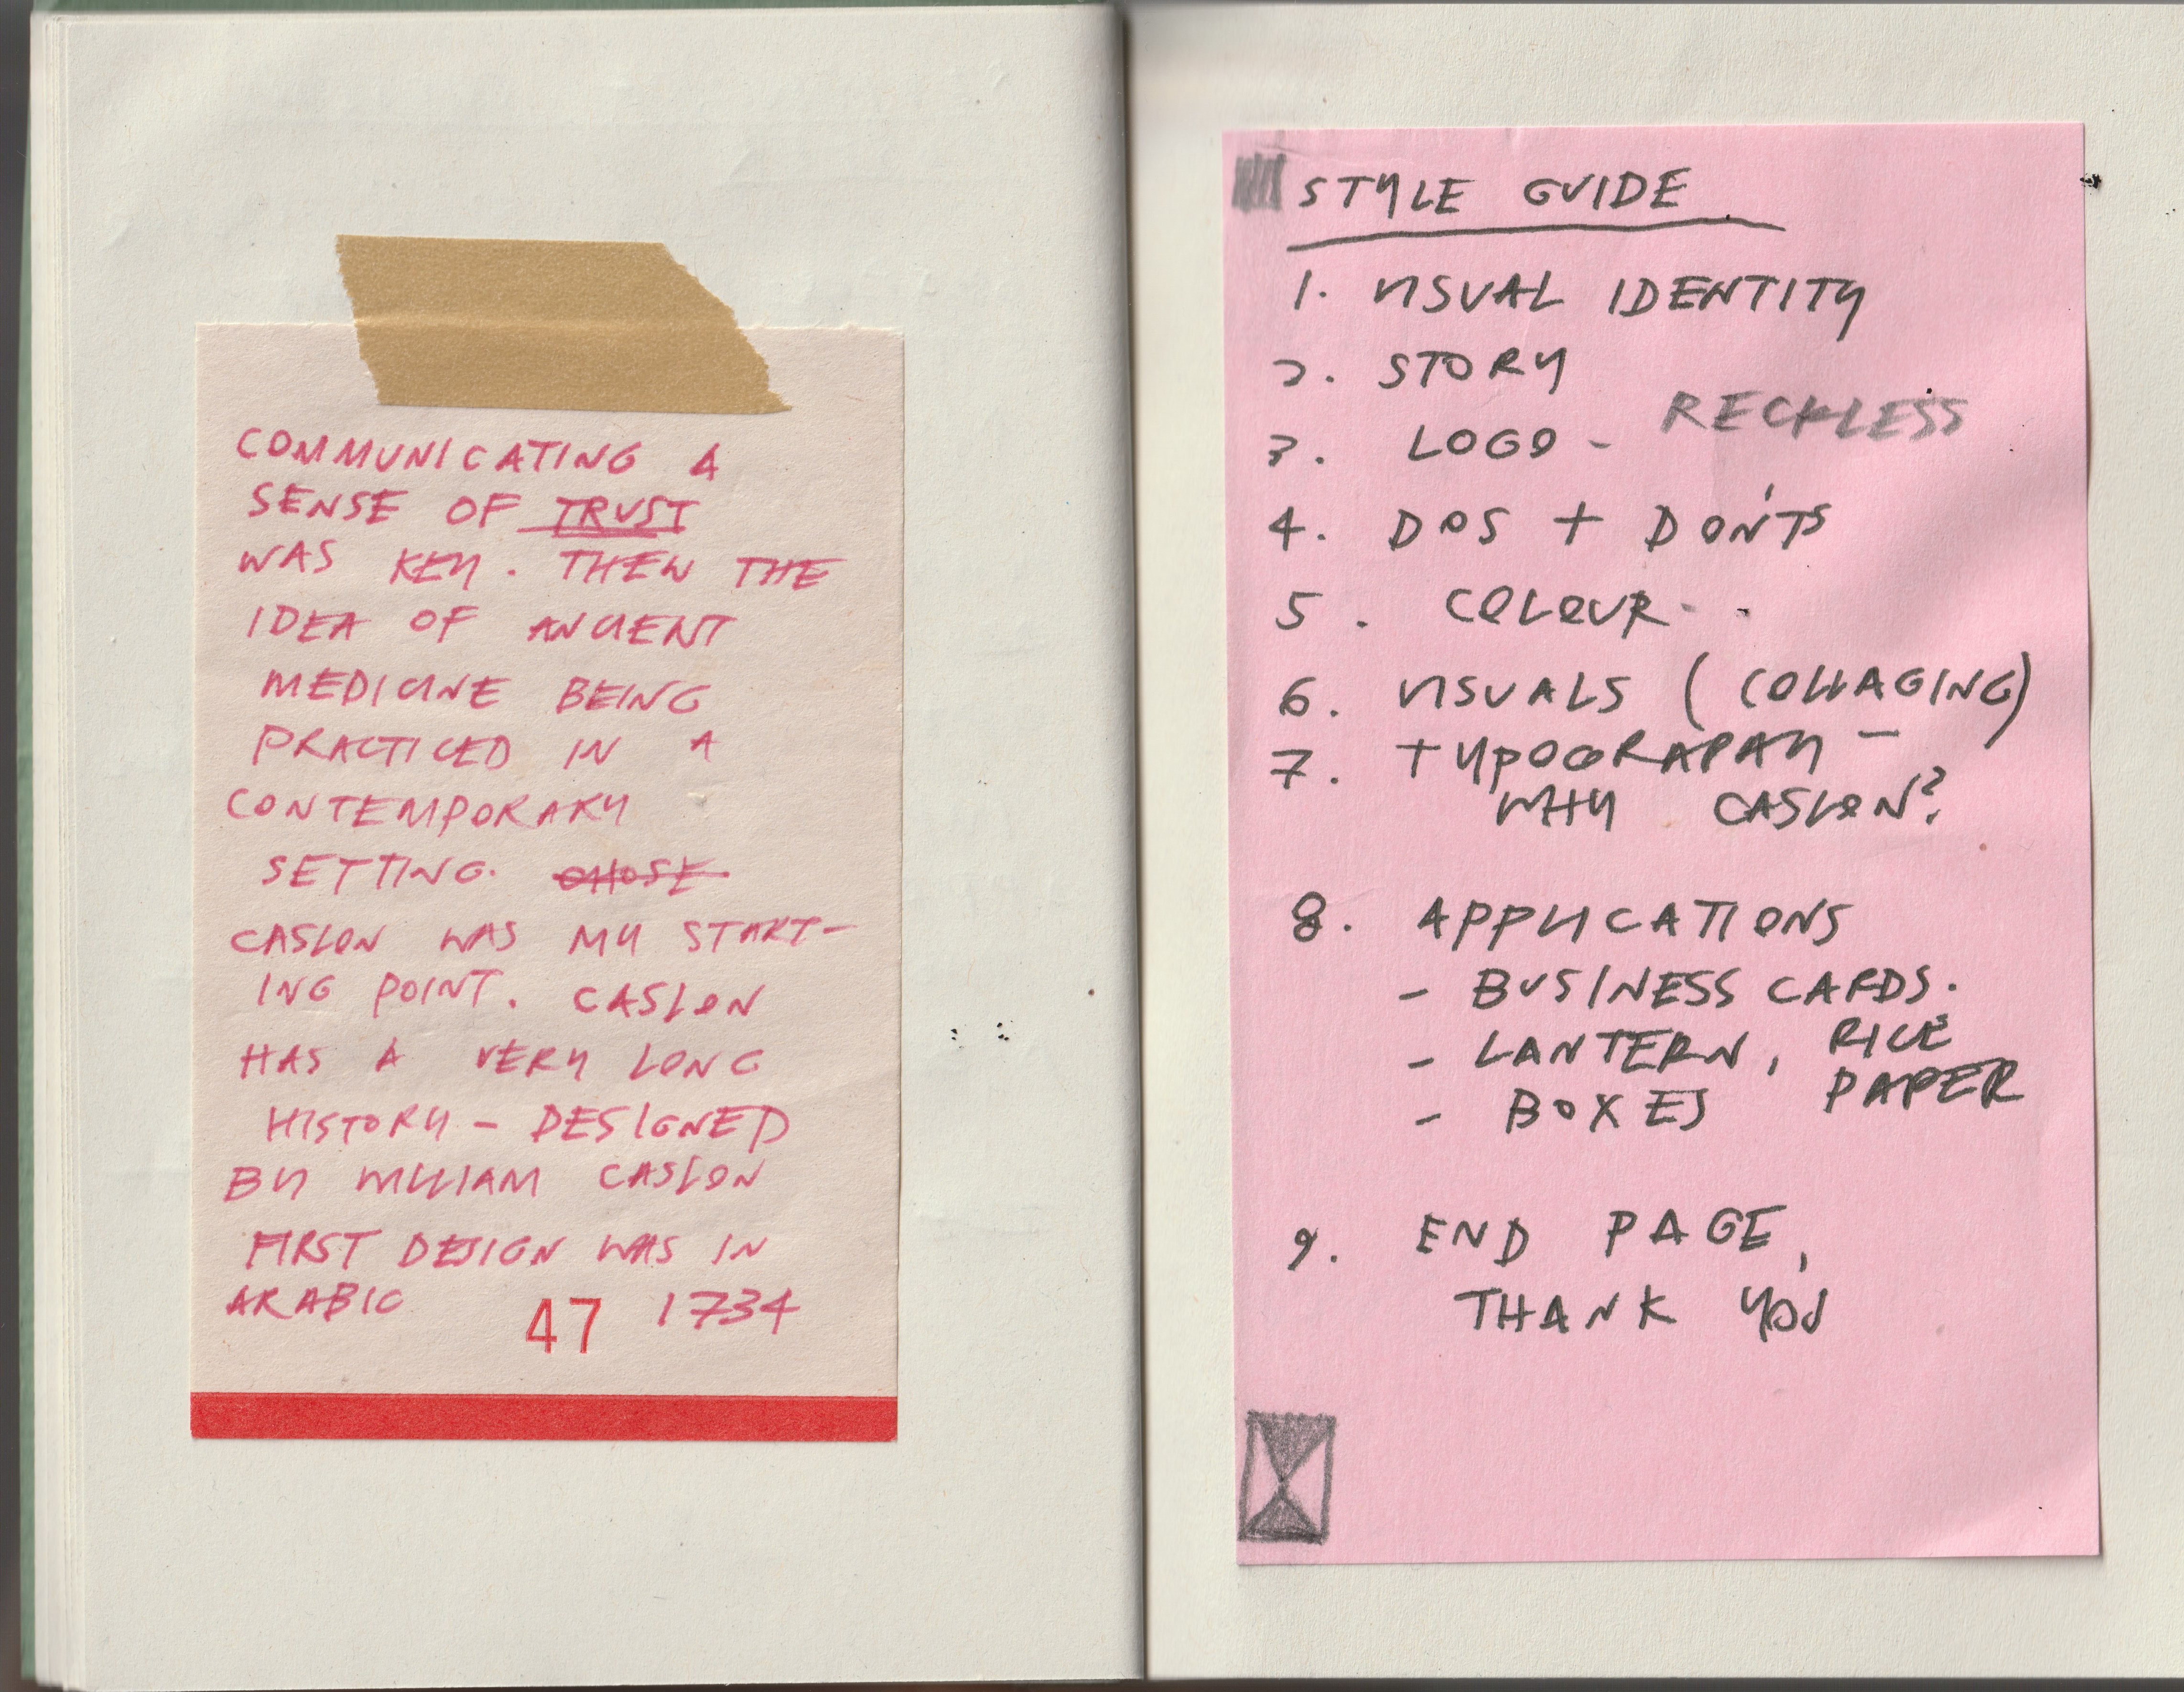 COMMUNICATING A
SENSE OF TRUST
WAS KEY. THEN THE
IDEA OF ANCIENT
MEDICINE BEING
PRACTICED IN A
CONTEMPORARY
SETTING. CHOSE
CASLON WAS MY START-
ING POINT. CASLON
HAS A VERY LONG
HISTORY - DESIGNED
BY WILLIAM CASLON
FIRST DESIGN WAS IN
ARABIC 47 1734
STYLE GUIDE
1. VISUAL IDENTITY
2. STORY
3. LOGO - RECKLESS
4. DOS + DON'TS
5. COLOUR
6. VISUALS (COLLAGING)
7. TYPOGRAPHY -
WHY CASLON?
8. APPLICATIONS
- BUSINESS CARDS.
- LANTERN, RICE
PAPER
- BOXES
9. END PAGE,
THANK YOU